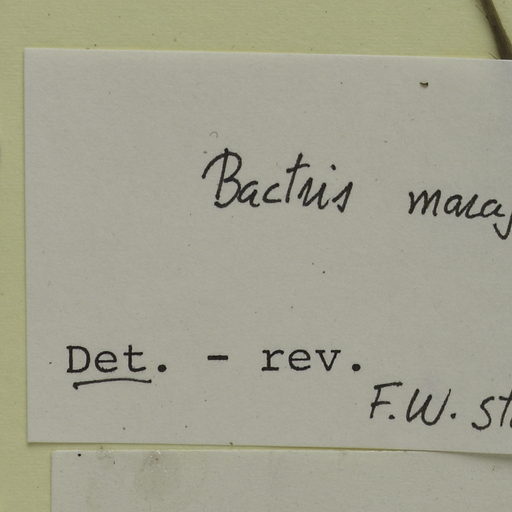 Bactris maraj
Det. - rev.
F.W. St